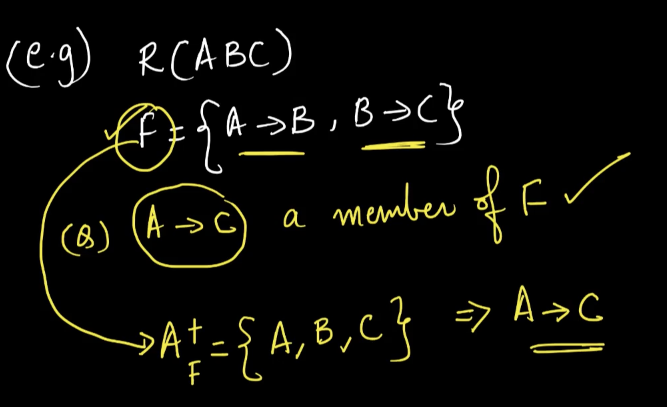 (e.g) R(ABC)
F = {A → B, B → C}
(Q) A → C a member of F ✓
A⁺_F = {A, B, C} ⇒ A → C